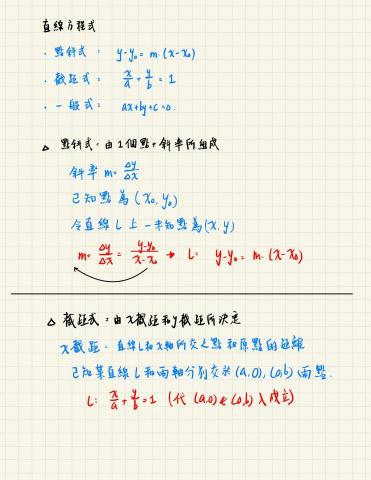 直線方程式
· 點斜式： y-y₀ = m·(x-x₀)
· 截距式： x/a + y/b = 1
· 一般式： ax+by+c=0.
△ 點斜式：由1個點+斜率所組成
斜率 m = Δy/Δx
已知點為 (x₀, y₀)
令直線 L 上一未知點為 (x, y)
m = Δy/Δx = y-y₀/x-x₀ → L: y-y₀ = m·(x-x₀)
△ 截距式：由x截距和y截距所決定
x截距：直線L和x軸所交之點和原點的距離
已知某直線L和兩軸分別交於(a,0), (0,b)兩點.
L: x/a + y/b = 1 (代 (a,0) & (0,b) 入成立)